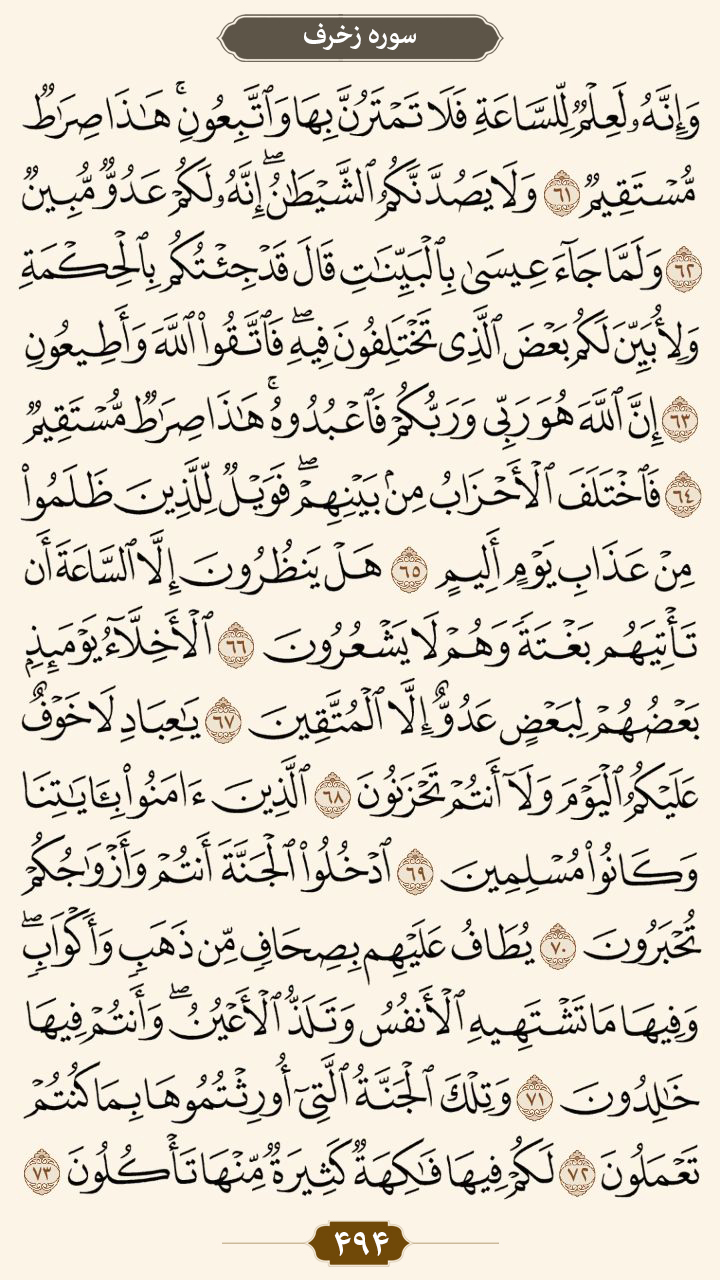 سوره زخرف
وَإِنَّهُۥ لَعِلۡمٞ لِّلسَّاعَةِ فَلَا تَمۡتَرُنَّ بِهَا وَٱتَّبِعُونِۚ هَٰذَا صِرَٰطٞ
مُّسۡتَقِيمٞ ٦١ وَلَا يَصُدَّنَّكُمُ ٱلشَّيۡطَٰنُۖ إِنَّهُۥ لَكُمۡ عَدُوّٞ مُّبِينٞ
٦٢ وَلَمَّا جَآءَ عِيسَىٰ بِٱلۡبَيِّنَٰتِ قَالَ قَدۡ جِئۡتُكُم بِٱلۡحِكۡمَةِ
وَلِأُبَيِّنَ لَكُم بَعۡضَ ٱلَّذِي تَخۡتَلِفُونَ فِيهِۖ فَٱتَّقُواْ ٱللَّهَ وَأَطِيعُونِ
٦٣ إِنَّ ٱللَّهَ هُوَ رَبِّي وَرَبُّكُمۡ فَٱعۡبُدُوهُۚ هَٰذَا صِرَٰطٞ مُّسۡتَقِيمٞ
٦٤ فَٱخۡتَلَفَ ٱلۡأَحۡزَابُ مِنۢ بَيۡنِهِمۡۖ فَوَيۡلٞ لِّلَّذِينَ ظَلَمُواْ
مِنۡ عَذَابِ يَوۡمٍ أَلِيمٍ ٦٥ هَلۡ يَنظُرُونَ إِلَّا ٱلسَّاعَةَ أَن
تَأۡتِيَهُم بَغۡتَةٗ وَهُمۡ لَا يَشۡعُرُونَ ٦٦ ٱلۡأَخِلَّآءُ يَوۡمَئِذِۭ
بَعۡضُهُمۡ لِبَعۡضٍ عَدُوٌّ إِلَّا ٱلۡمُتَّقِينَ ٦٧ يَٰعِبَادِ لَا خَوۡفٌ
عَلَيۡكُمُ ٱلۡيَوۡمَ وَلَآ أَنتُمۡ تَحۡزَنُونَ ٦٨ ٱلَّذِينَ ءَامَنُواْ بِـَٔايَٰتِنَا
وَكَانُواْ مُسۡلِمِينَ ٦٩ ٱدۡخُلُواْ ٱلۡجَنَّةَ أَنتُمۡ وَأَزۡوَٰجُكُمۡ
تُحۡبَرُونَ ٧٠ يُطَافُ عَلَيۡهِم بِصِحَافٖ مِّن ذَهَبٖ وَأَكۡوَابٖۖ
وَفِيهَا مَا تَشۡتَهِيهِ ٱلۡأَنفُسُ وَتَلَذُّ ٱلۡأَعۡيُنُۖ وَأَنتُمۡ فِيهَا
خَٰلِدُونَ ٧١ وَتِلۡكَ ٱلۡجَنَّةُ ٱلَّتِيٓ أُورِثۡتُمُوهَا بِمَا كُنتُمۡ
تَعۡمَلُونَ ٧٢ لَكُمۡ فِيهَا فَٰكِهَةٞ كَثِيرَةٞ مِّنۡهَا تَأۡكُلُونَ ٧٣
۴۹۴